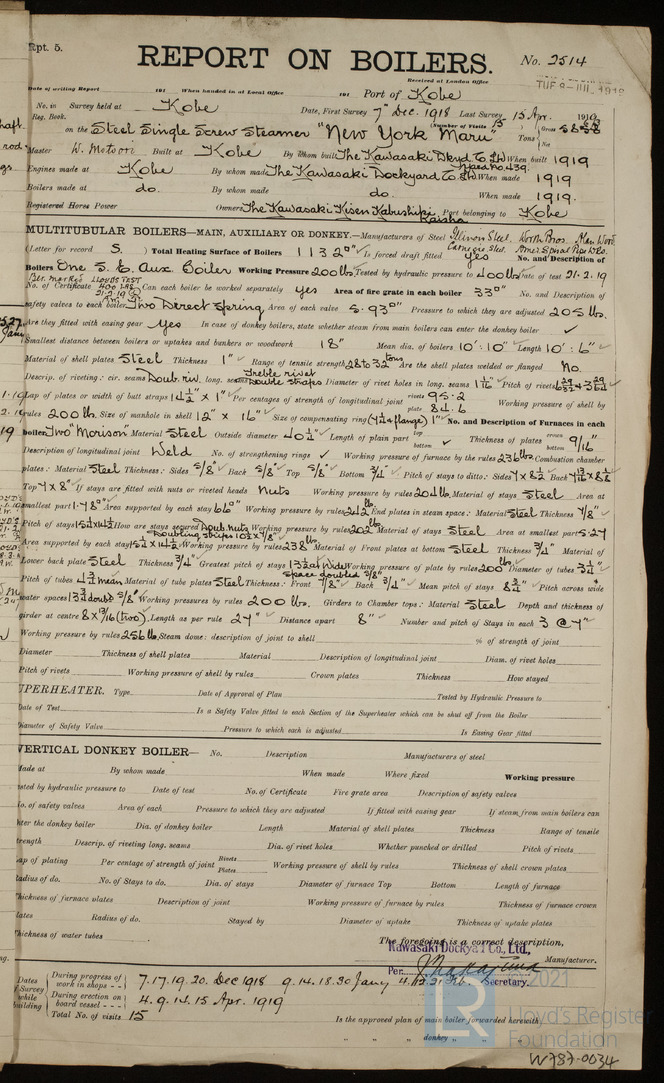 Rpt. 5.
REPORT ON BOILERS.
No. 2514
Received at London Office
Date of writing Report 191 When handed in at Local Office 191 Port of Kobe
No. in Survey held at Kobe Date, First Survey 7th Dec. 1918 Last Survey 15 Apr. 1919
Reg. Book. (Number of Visits 15
on the Steel Single Screw Steamer "New York Maru" Tons Gross Net
Master W. Motoori Built at Kobe By whom built The Kawasaki Dkyd Co. Ld When built 1919
Yard No. 439.
Engines made at Kobe By whom made The Kawasaki Dockyard Co. Ld When made 1919
Boilers made at do. By whom made do. When made 1919.
Registered Horse Power Owners The Kawasaki Kisen Kabushiki Kaisha Port belonging to Kobe
MULTITUBULAR BOILERS—MAIN, AUXILIARY OR DONKEY.—Manufacturers of Steel Illinois Steel, Worth Bros. Alan Wood
Carnegie Steel
(Letter for record S. ) Total Heating Surface of Boilers 1132 Is forced draft fitted yes No. and Description of
Boilers One S. E. Aux. Boiler Working Pressure 200 lbs Tested by hydraulic pressure to 400 lbs Date of test 21.2.19
No. of Certificate Can each boiler be worked separately yes Area of fire grate in each boiler 33 No. and Description of
safety valves to each boiler Two Direct Spring Area of each valve 5.93 Pressure to which they are adjusted 205 lbs.
Are they fitted with easing gear Yes In case of donkey boilers, state whether steam from main boilers can enter the donkey boiler ✓
Smallest distance between boilers or uptakes and bunkers or woodwork 18" Mean dia. of boilers 10'.10" Length 10'.6"
Material of shell plates Steel Thickness 1" Range of tensile strength 28 & 32 tons Are the shell plates welded or flanged No.
Descrip. of riveting: cir. seams Doub. riv. long. seams Treble rivet Double straps Diameter of rivet holes in long. seams 1 1/16 Pitch of rivets
Lap of plates or width of butt straps 14 1/2" x 1" Per centages of strength of longitudinal joint rivets 95.2 plate 84.6 Working pressure of shell by
rules 200 lbs Size of manhole in shell 12" x 16" Size of compensating ring No. and Description of Furnaces in each
boiler Two "Morison" Material Steel Outside diameter 40 1/4" Length of plain part top bottom Thickness of plates crown bottom 9/16"
Description of longitudinal joint Weld No. of strengthening rings ✓ Working pressure of furnace by the rules 236 lbs Combustion chamber
plates: Material Steel Thickness: Sides 5/8" Back 5/8" Top 5/8" Bottom 3/4" Pitch of stays to ditto: Sides 7 x 8 1/2 Back
Top 7 x 8" If stays are fitted with nuts or riveted heads Nuts Working pressure by rules 204 lbs Material of stays Steel Area at
smallest part Area supported by each stay 66" Working pressure by rules 242 lbs End plates in steam space: Material Steel Thickness 7/8"
Pitch of stays How are stays secured Doub. nuts Working pressure by rules 202 lbs Material of stays Steel Area at smallest part 5.27
Area supported by each stay Working pressure by rules 238 lbs Material of Front plates at bottom Steel Thickness 3/4" Material of
Lower back plate Steel Thickness 3/4" Greatest pitch of stays Working pressure of plate by rules 200 lbs Diameter of tubes 3 1/4"
Pitch of tubes 4 3/4 mean Material of tube plates Steel Thickness: Front 7/8" Back 3/4" Mean pitch of stays 8 3/4" Pitch across wide
water spaces 13 3/4 doub. 5/8" Working pressures by rules 200 lbs. Girders to Chamber tops: Material Steel Depth and thickness of
girder at centre 8 x 13/16 (two) Length as per rule 27" Distance apart 8" Number and pitch of Stays in each 3 @ 7"
Working pressure by rules 256 lb. Steam dome: description of joint to shell % of strength of joint
Diameter Thickness of shell plates Material Description of longitudinal joint Diam. of rivet holes
Pitch of rivets Working pressure of shell by rules Crown plates Thickness How stayed
UPERHEATER. Type Date of Approval of Plan Tested by Hydraulic Pressure to
Date of Test Is a Safety Valve fitted to each Section of the Superheater which can be shut off from the Boiler
Diameter of Safety Valve Pressure to which each is adjusted Is Easing Gear fitted
VERTICAL DONKEY BOILER— No. Description Manufacturers of steel
Made at By whom made When made Where fixed Working pressure
tested by hydraulic pressure to Date of test No. of Certificate Fire grate area Description of safety valves
No. of safety valves Area of each Pressure to which they are adjusted If fitted with easing gear If steam from main boilers can
enter the donkey boiler Dia. of donkey boiler Length Material of shell plates Thickness Range of tensile
strength Descrip. of riveting long. seams Dia. of rivet holes Whether punched or drilled Pitch of rivets
Lap of plating Per centage of strength of joint Rivets Plates Working pressure of shell by rules Thickness of shell crown plates
Radius of do. No. of Stays to do. Dia. of stays Diameter of furnace Top Bottom Length of furnace
Thickness of furnace plates Description of joint Working pressure of furnace by rules Thickness of furnace crown
plates Radius of do. Stayed by Diameter of uptake Thickness of uptake plates
Thickness of water tubes
The foregoing is a correct description,
Kawasaki Dockyard Co., Ltd., Manufacturer.
Per Secretary.
Dates of Survey while building
During progress of work in shops - - 7.17.19.20. Dec 1918 9.14.18.30 Jany
During erection on board vessel - - - 4.9.14.15 Apr. 1919
Total No. of visits 15
Is the approved plan of main boiler forwarded herewith
" " " donkey " " "
2021
LR Lloyd's Register Foundation
W787-0034